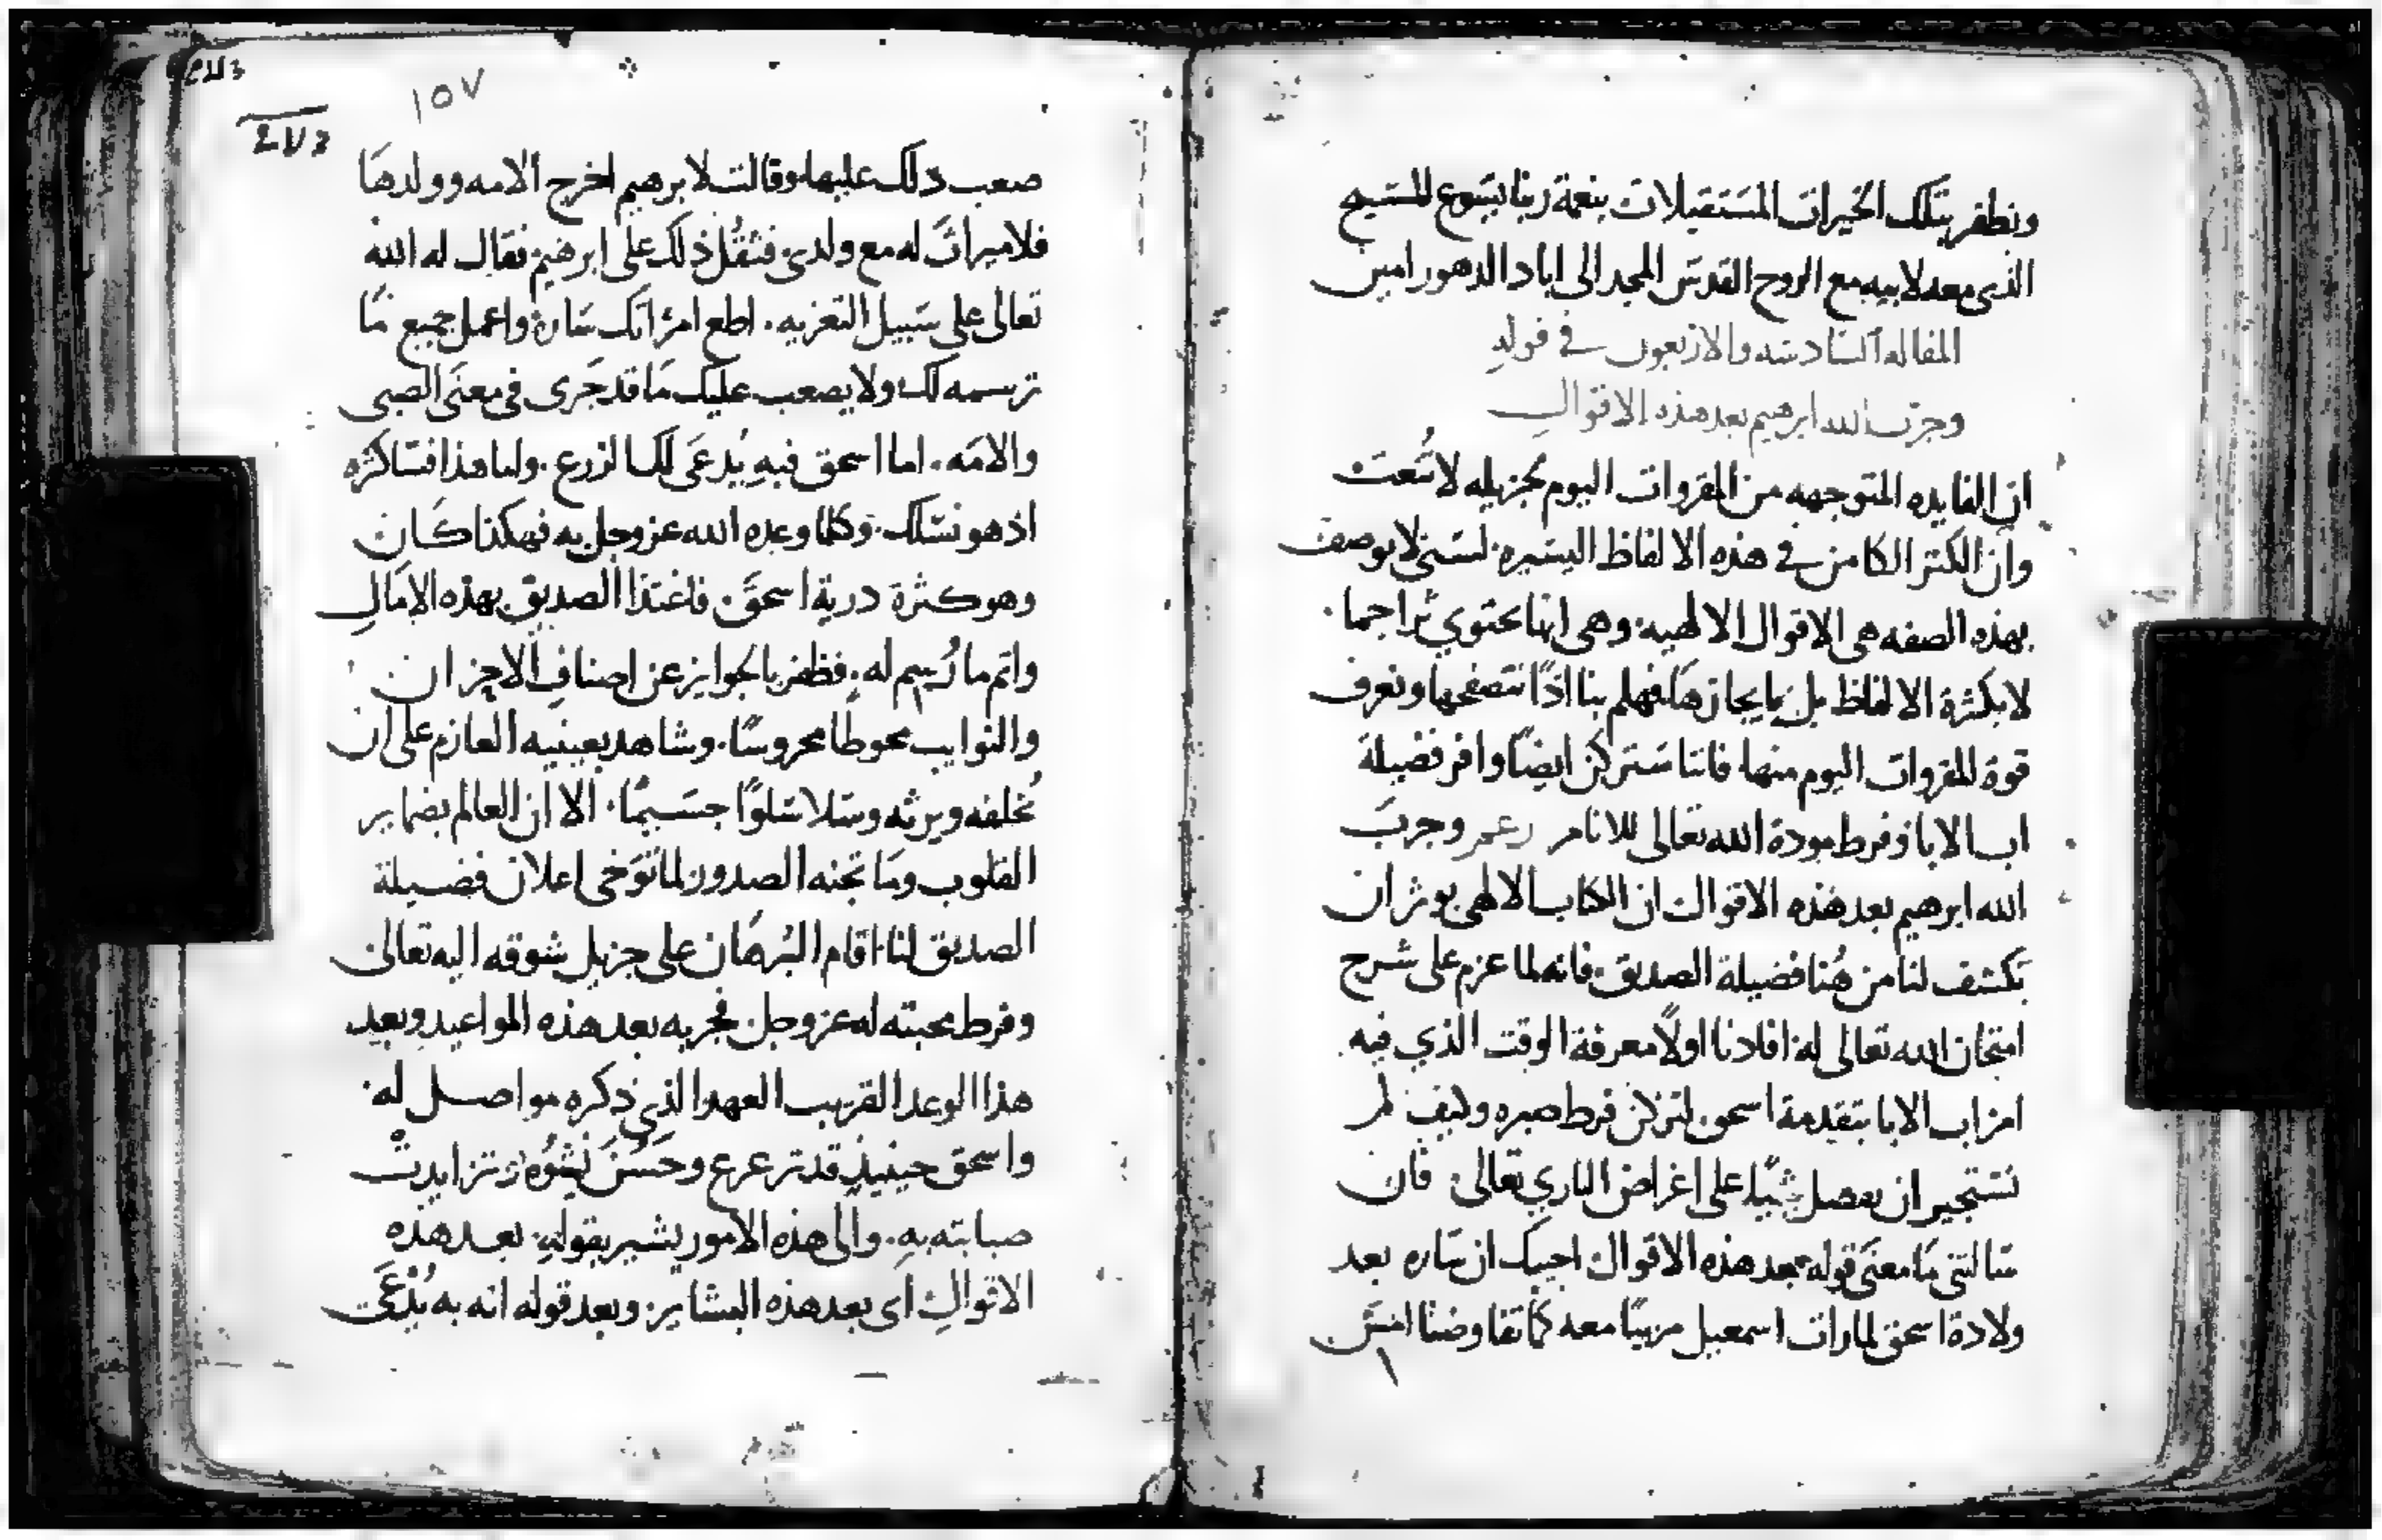 ونظفر بتلك الخيرات المستقبلات بنعمة ربنا يسوع المسيح
الذى معه لابيه مع الروح القدس المجد الى اباد الدهور امين
المقاله السادسه والاربعون في قوله
وجرب الله ابرهيم بعد هذه الاقوال
ان الفايده المتوجهه من المقروات اليوم لجزيله لا تنعت
وان الكنز الكامن في هذه الالفاظ اليسيره لسنى لا يوصف
بهذه الصفه هى الاقوال الالهيه وهى انها تحتوي تراجما
لا بكثرة الالفاظ بل بايجازها فهلم بنا اذًا نتصفحها ونعرف
قوة المقروات اليوم منها فاننا سنتركن ايضًا وافر فضيلة
اب الابا وفرط مودة الله تعالى للانام زعم وجرب
الله ابرهيم بعد هذه الاقوال ان الكتاب الالهى يوثر ان
يكشف لنا من هُنا فضيلة الصديق فانه لما عزم على شرح
امتحان الله تعالى له افادنا اولًا معرفة الوقت الذي فيه
امر اب الابا بتقدمة اسحق لتركن فرط صبره وكيف لم
يستجير ان يفضل شيًا على اغراض الباري تعالى فان
سالتنى ما معنى قوله بعد هذه الاقوال اجيبك ان ساره بعد
ولادة اسحق لما رات اسمعيل مربيًا معه كما تفاوضنا امس
١٥٧
صعب ذلك عليها وقالت لابرهيم اخرج الامه وولدها
فلا ميراث له مع ولدى فثقُل ذلك على ابرهيم فقال له الله
تعالى على سبيل التعزيه. اطع امراتك سارة واعمل جميع ما
ترسمه لك ولا يصعب عليك ما قد جرى في معنى الصبى
والامه. اما اسحق فبه يُدعَى لك الزرع. واما هذا فساكثره
اذ هو نسلك. وكلما وعده الله عز وجل به فهكذا كان
وهو كثرة درية اسحق. فاغتذا الصديق بهذه الامال
واتم ما رُسم له. فظفر بالجوايز عن اصناف الاحزان
والنوايب محوطا محروسًا. وشاهد بعينيه العازم على ان
يُخلفه ويرثه وسلا سلوًا جسيمًا. الا ان العالم بضماير
القلوب وما تجنه الصدور لما توخى اعلان فضيلة
الصديق لنا اقام البُرهان على جزيل شوقه اليه تعالى
وفرط محبته له عز وجل فجربه بعد هذه المواعيد وبعد
هذا الوعد القريب العهد الذي ذكره مواصل له
واسحق حينيذ قد ترعرع وحَسُنَ نشوُه وتزايدتْ
صبابته به. والى هذه الامور يشير بقوله. بعد هذه
الاقوال اى بعد هذه البشاير. وبعد قوله انه به يُدْعَى